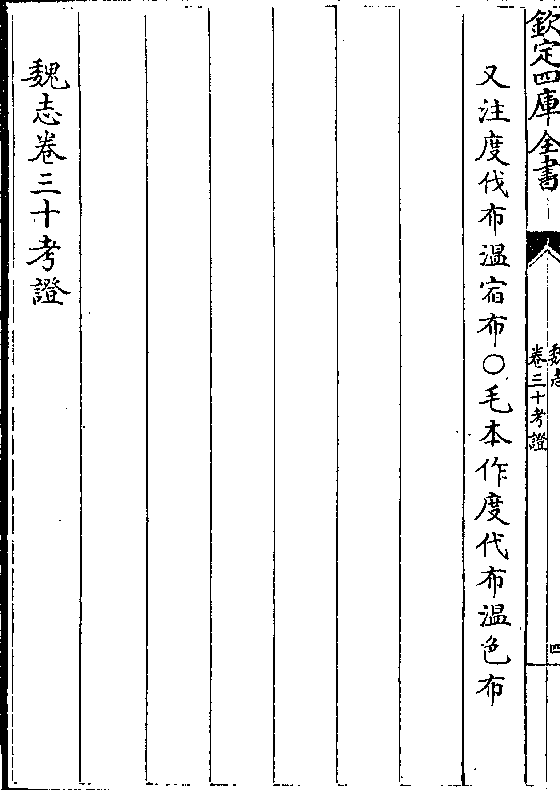 欽定四庫全書
魏志
卷三十考證
四
又注度伐布溫宿布○毛本作度代布溫色布
魏志卷三十考證